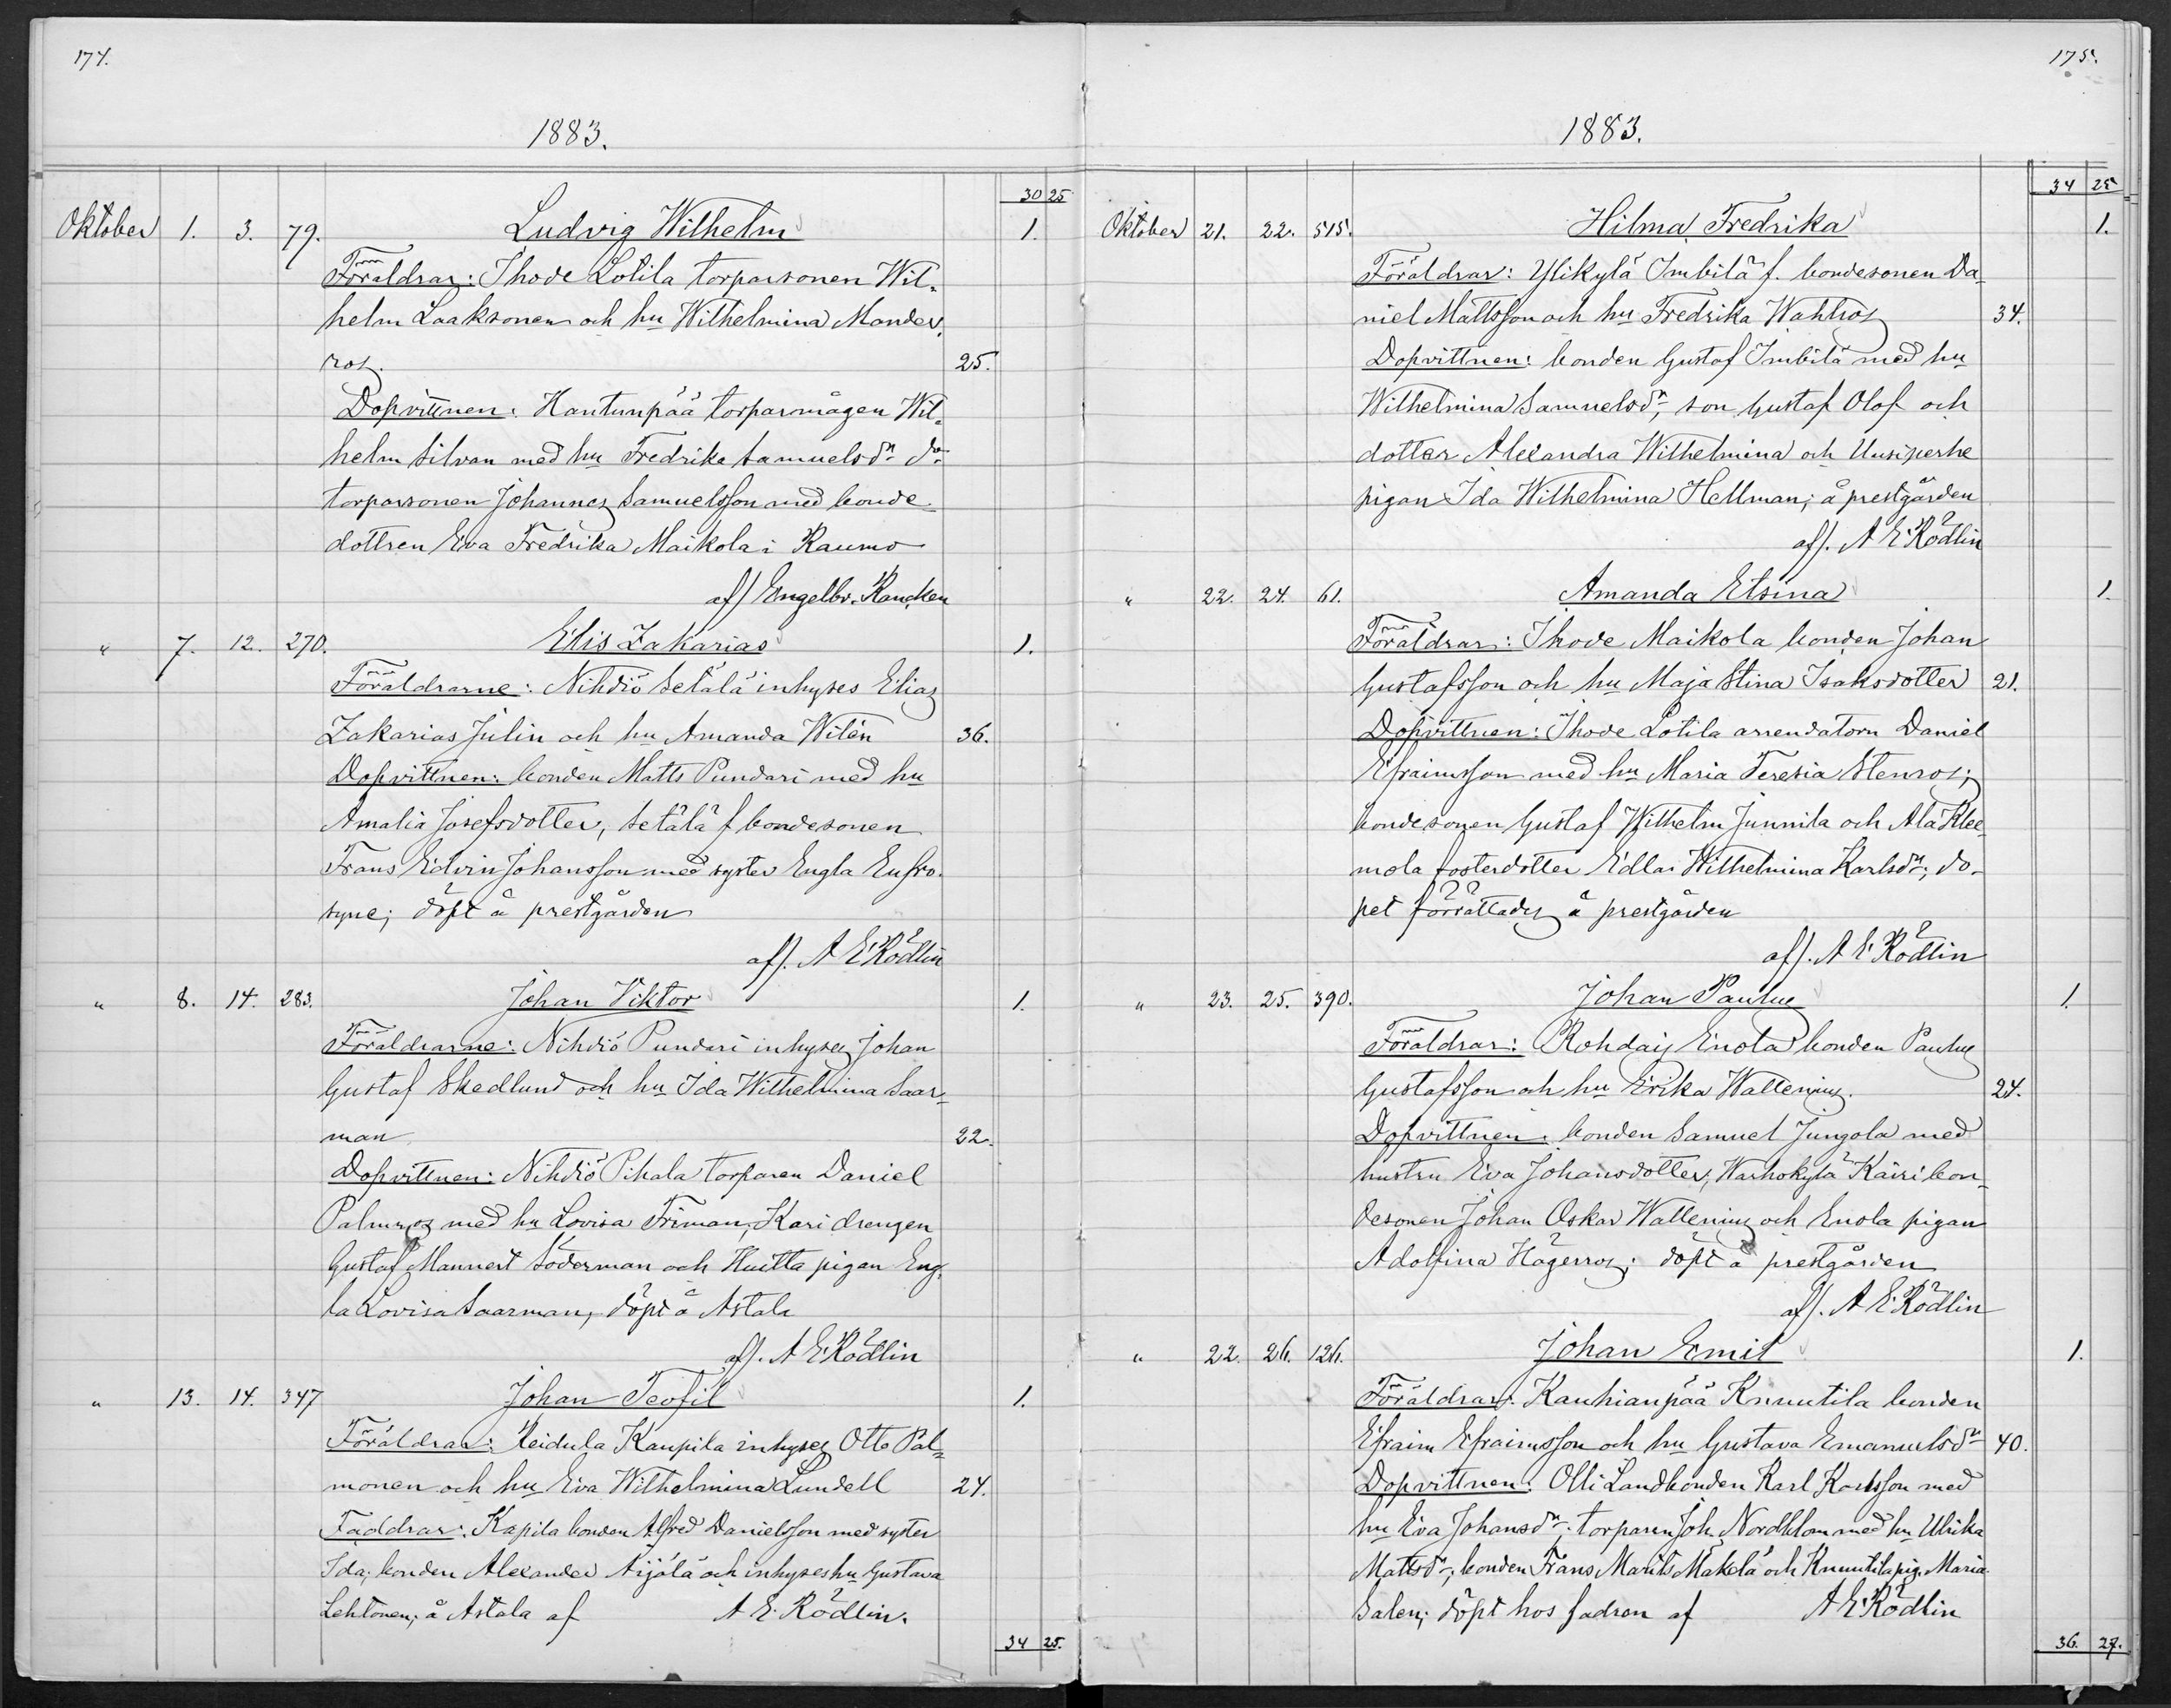 174.
1883.
30 25
Oktober 1. 3. 79. Ludvig Wilhelm 1.
Föräldrar: Ihode Lotila torparsonen Wil-
helm Laaksonen och hu Wilhelmina Mander-
ros. 25.
Dopvittnen: Hantunpää torparmågen Wil-
helm Silvan med hu Fredrika Samuelsdr do
torparsonen Johannes Samuelsson med bonde
dottren Eva Fredrika Maikola i Raumo
af/ Engelbr. Rancken
" 7. 12. 270. Elis Zakarias 1.
Föräldrarne: Nihdiö Setälä inhyses Elias
Zakarias Julin och hu Amanda Wilén 36.
Dopvittnen: bonden Matts Pundari med hu
Amalia Josefsdotter, Setälä f bondesonen
Frans Edvin Johansson med syster Engla Eufro-
syne; döpt å prestgården
af/. A E Rödlin
" 8. 14. 283. Johan Viktor 1.
Föräldrarne: Nihdiö Pundari inhyses Johan
Gustaf Skedlund och hu Ida Wilhelmina Saar-
man 22.
Dopvittnen: Nihdiö Pihala torparen Daniel
Palmros med hu Lovisa Friman, Kari drengen
Gustaf Mannert Söderman och Huitta pigan Eng-
la Lovisa Saarman, döpt å Astala
af/. A E Rödlin
" 13. 14. 347 Johan Teofil 1.
Föräldrar: Reidula Kaupila inhyses Otto Pal-
monen och hu Eva Wilhelmina Lundell 24.
Faddrar: Kapila bonden Alfred Danielsson med syster
Ida; bonden Alexander Äijälä och inhyses hu Gustava
Lehtonen; å Astala af A E. Rödlin.
34 25.
175.
1883.
34 25
Oktober 21. 22. 515. Hilma Fredrika 1.
Föräldrar: Ylikylä Imbilä f. bondesonen Da-
niel Mattsson och hu Fredrika Wahlros 34.
Dopvittnen: bonden Gustaf Imbilä med hu
Wilhelmina Samuelsdr, son Gustaf Olof och
dotter Alexandra Wilhelmina och Uusiperhe
pigan Ida Wilhelmina Hellman; å prestgården
af/. A E Rödlin
" 22. 24. 61. Amanda Elsina 1.
Föräldrar: Ihode Maikola bonden Johan
Gustafsson och hu Maja Stina Isaksdotter 21.
Dopvittnen: Ihode Lotila arrendatorn Daniel
Efraimsson med hu Maria Teresia Stenros;
bondesonen Gustaf Wilhelm Junnila och Ala Klee-
mola fosterdotter Edla Wilhelmina Karlsdr; do-
pet förrättades å prestgården
af/. A E Rödlin
" 23. 25. 390. Johan Paulus 1.
Föräldrar: Rohdais Enola bonden Paulus
Gustafsson och hu Erika Wallenius. 24.
Dopvittnen: bonden Samuel Jungola med
hustru Eva Johansdotter, Warhokylä Käiri bon-
desonen Johan Oskar Wallenius och Enola pigan
Adolfina Hägerros; döpt å prestgården
af/. A E Rödlin
" 22. 26. 126. Johan Emil 1.
Föräldrar: Kauhianpää Knuutila bonden
Efraim Efraimsson och hu Gustava Emanuelsdr 40.
Dopvittnen: Olli Landbonden Karl Karlsson med
hu Eva Johansdr; torparen Joh. Nordblom med hu Ulrika
Mattsdr; bonden Frans Marits Mäkelä och Knuutila pig. Maria
Salen; döpt hos fadren af A E Rödlin
36. 27.